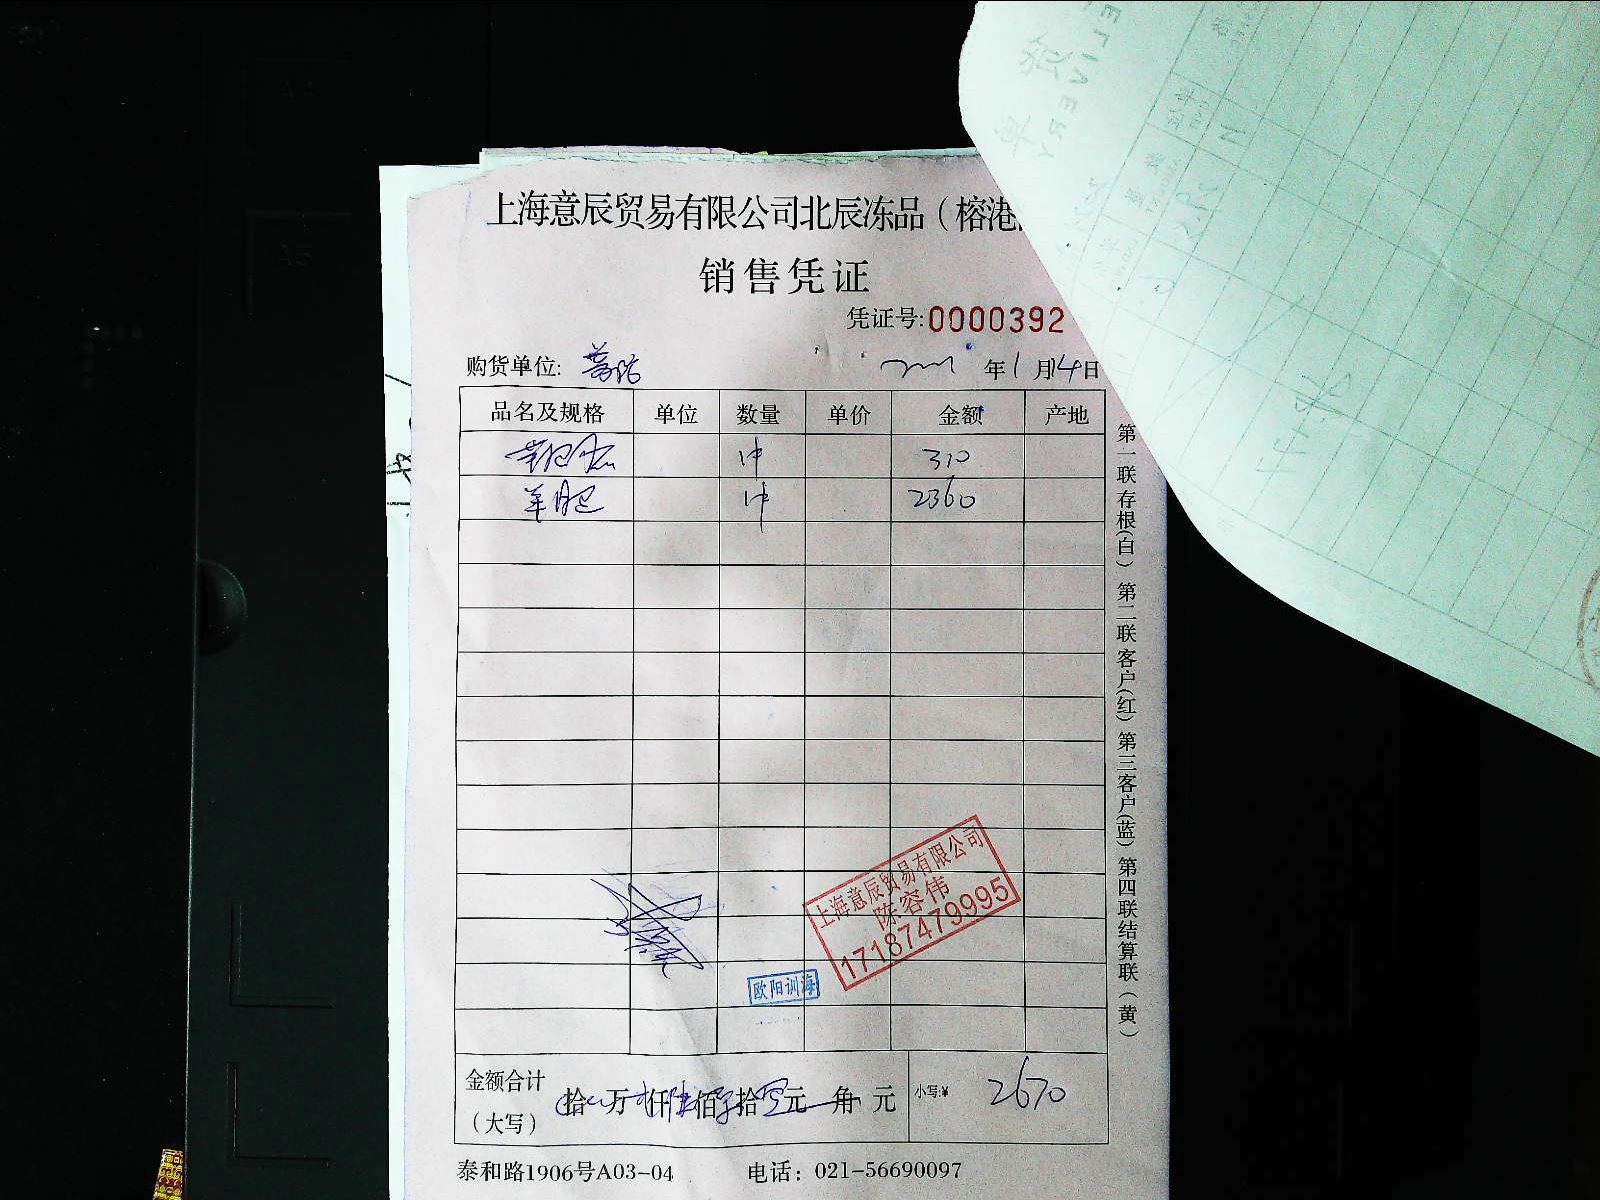 上海意辰贸易有限公司北辰冻品（榕港
销售凭证
凭证号:0000392
购货单位: 年1月14日
品名及规格 单位 数量 单价 金额 产地
1件 310
羊肥 1件 2360
第一联存根(白) 第二联客户(红) 第三客户(蓝) 第四联结算联(黄)
上海意辰贸易有限公司
陈容伟
17187479995
欧阳训海
金额合计
（大写）
拾 万 仟 陆 佰 拾 元 角 元 小写:¥ 2670
泰和路1906号A03-04 电话: 021-56690097